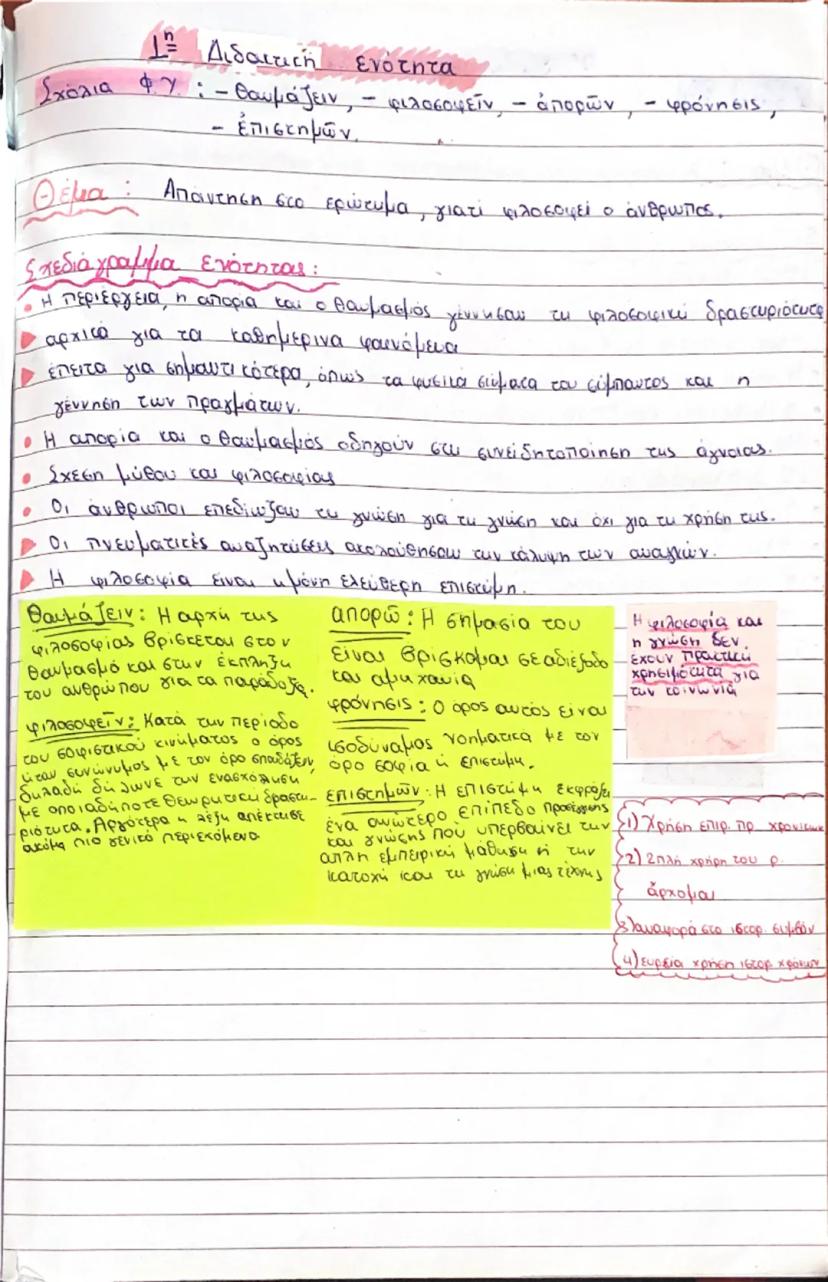 1η Διδακτική ενότητα
Σχόλια Φ.γ : - θαυμάζειν, - φιλοσοφεῖν, - ἀπορῶν, - φρόνησις,
- ἐπιστημῶν.
Θέμα : Απάντηση στο ερώτημα, γιατί φιλοσοφεί ο άνθρωπος.
Σχεδιάγραμμα ενότητας :
• Η περιέργεια, η απορία και ο θαυμασμός γέννησαν τη φιλοσοφική δραστηριότητα
αρχικά για τα καθημερινά φαινόμενα
έπειτα για σημαντικότερα, όπως τα φυσικά σώματα του σύμπαντος και η
γέννηση των πραγμάτων.
• Η απορία και ο θαυμασμός οδηγούν στη συνειδητοποίηση της άγνοιας.
• Σχέση μύθου και φιλοσοφίας
• Οι άνθρωποι επεδίωξαν τη γνώση για τη γνώση και όχι για τη χρήση της.
Οι πνευματικές αναζητήσεις ακολούθησαν την κάλυψη των αναγκών.
Η φιλοσοφία είναι η μόνη ελεύθερη επιστήμη.
θαυμάζειν : Η αρχή της
φιλοσοφίας βρίσκεται στον
θαυμασμό και στην έκπληξη
του ανθρώπου για τα παράδοξα.
φιλοσοφεῖν : Κατά την περίοδο
του σοφιστικού κινήματος ο όρος
ήταν συνώνυμος με τον όρο σπουδάζειν,
δηλαδή δήλωνε την ενασχόληση
με οποιαδήποτε θεωρητική δραστη-
ριότητα. Αργότερα η λέξη απέκτησε
ακόμα πιο γενικό περιεχόμενο
απορώ : Η σημασία του
είναι βρίσκομαι σε αδιέξοδο
και αμηχανία
φρόνησις : Ο όρος αυτός είναι
ισοδύναμος νοηματικά με τον
όρο σοφία ή επιστήμη.
επιστημῶν : Η επιστήμη εκφράζει
ένα ανώτερο επίπεδο προσέγγισης
και γνώσης που υπερβαίνει την
απλή εμπειρική μάθηση ή την
κατοχή και τη γνώση μιας τέχνης
Η φιλοσοφία και
η γνώση δεν
έχουν πρακτική
χρησιμότητα για
την κοινωνία
1) Χρήση επιρ. πρ. χρονικων
2) 2πλή χρήση του ρ.
ἄρχομαι
3) αναφορά στο ιστορ. συμβάν
4) ευρεία χρήση ιστορ. χρόνων